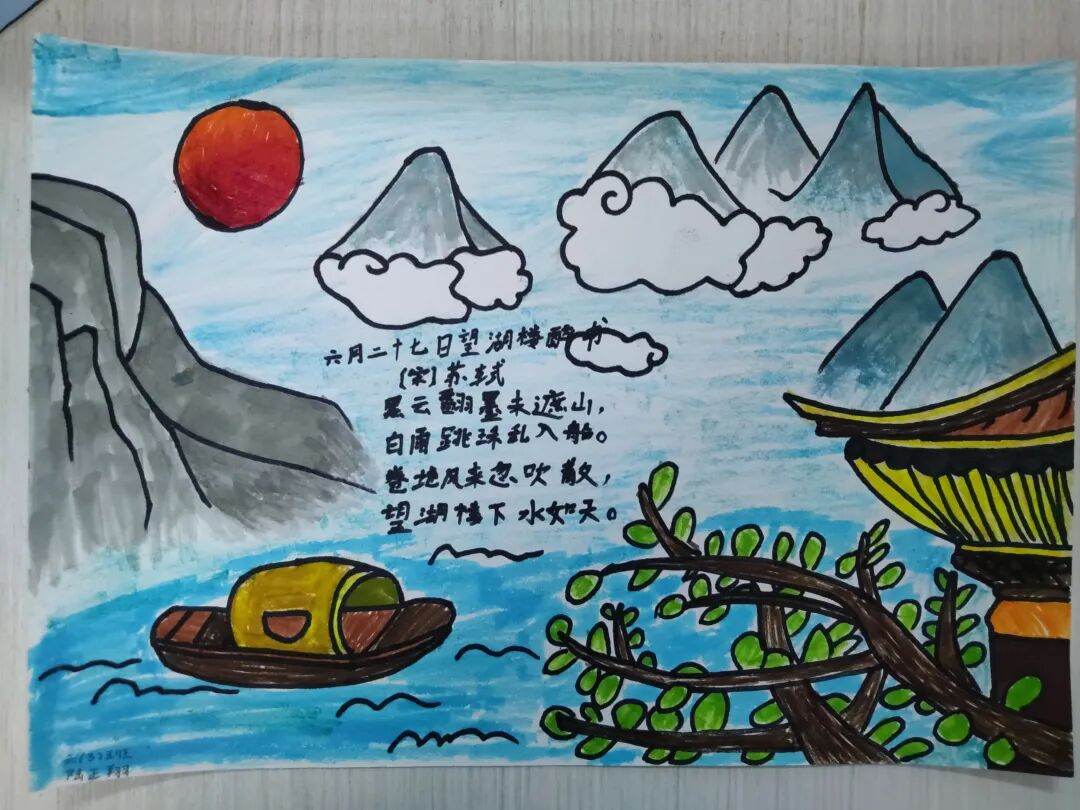 六月二十七日望湖楼醉书
【宋】苏轼
黑云翻墨未遮山，
白雨跳珠乱入船。
卷地风来忽吹散，
望湖楼下水如天。
六(3)班
陆正翔